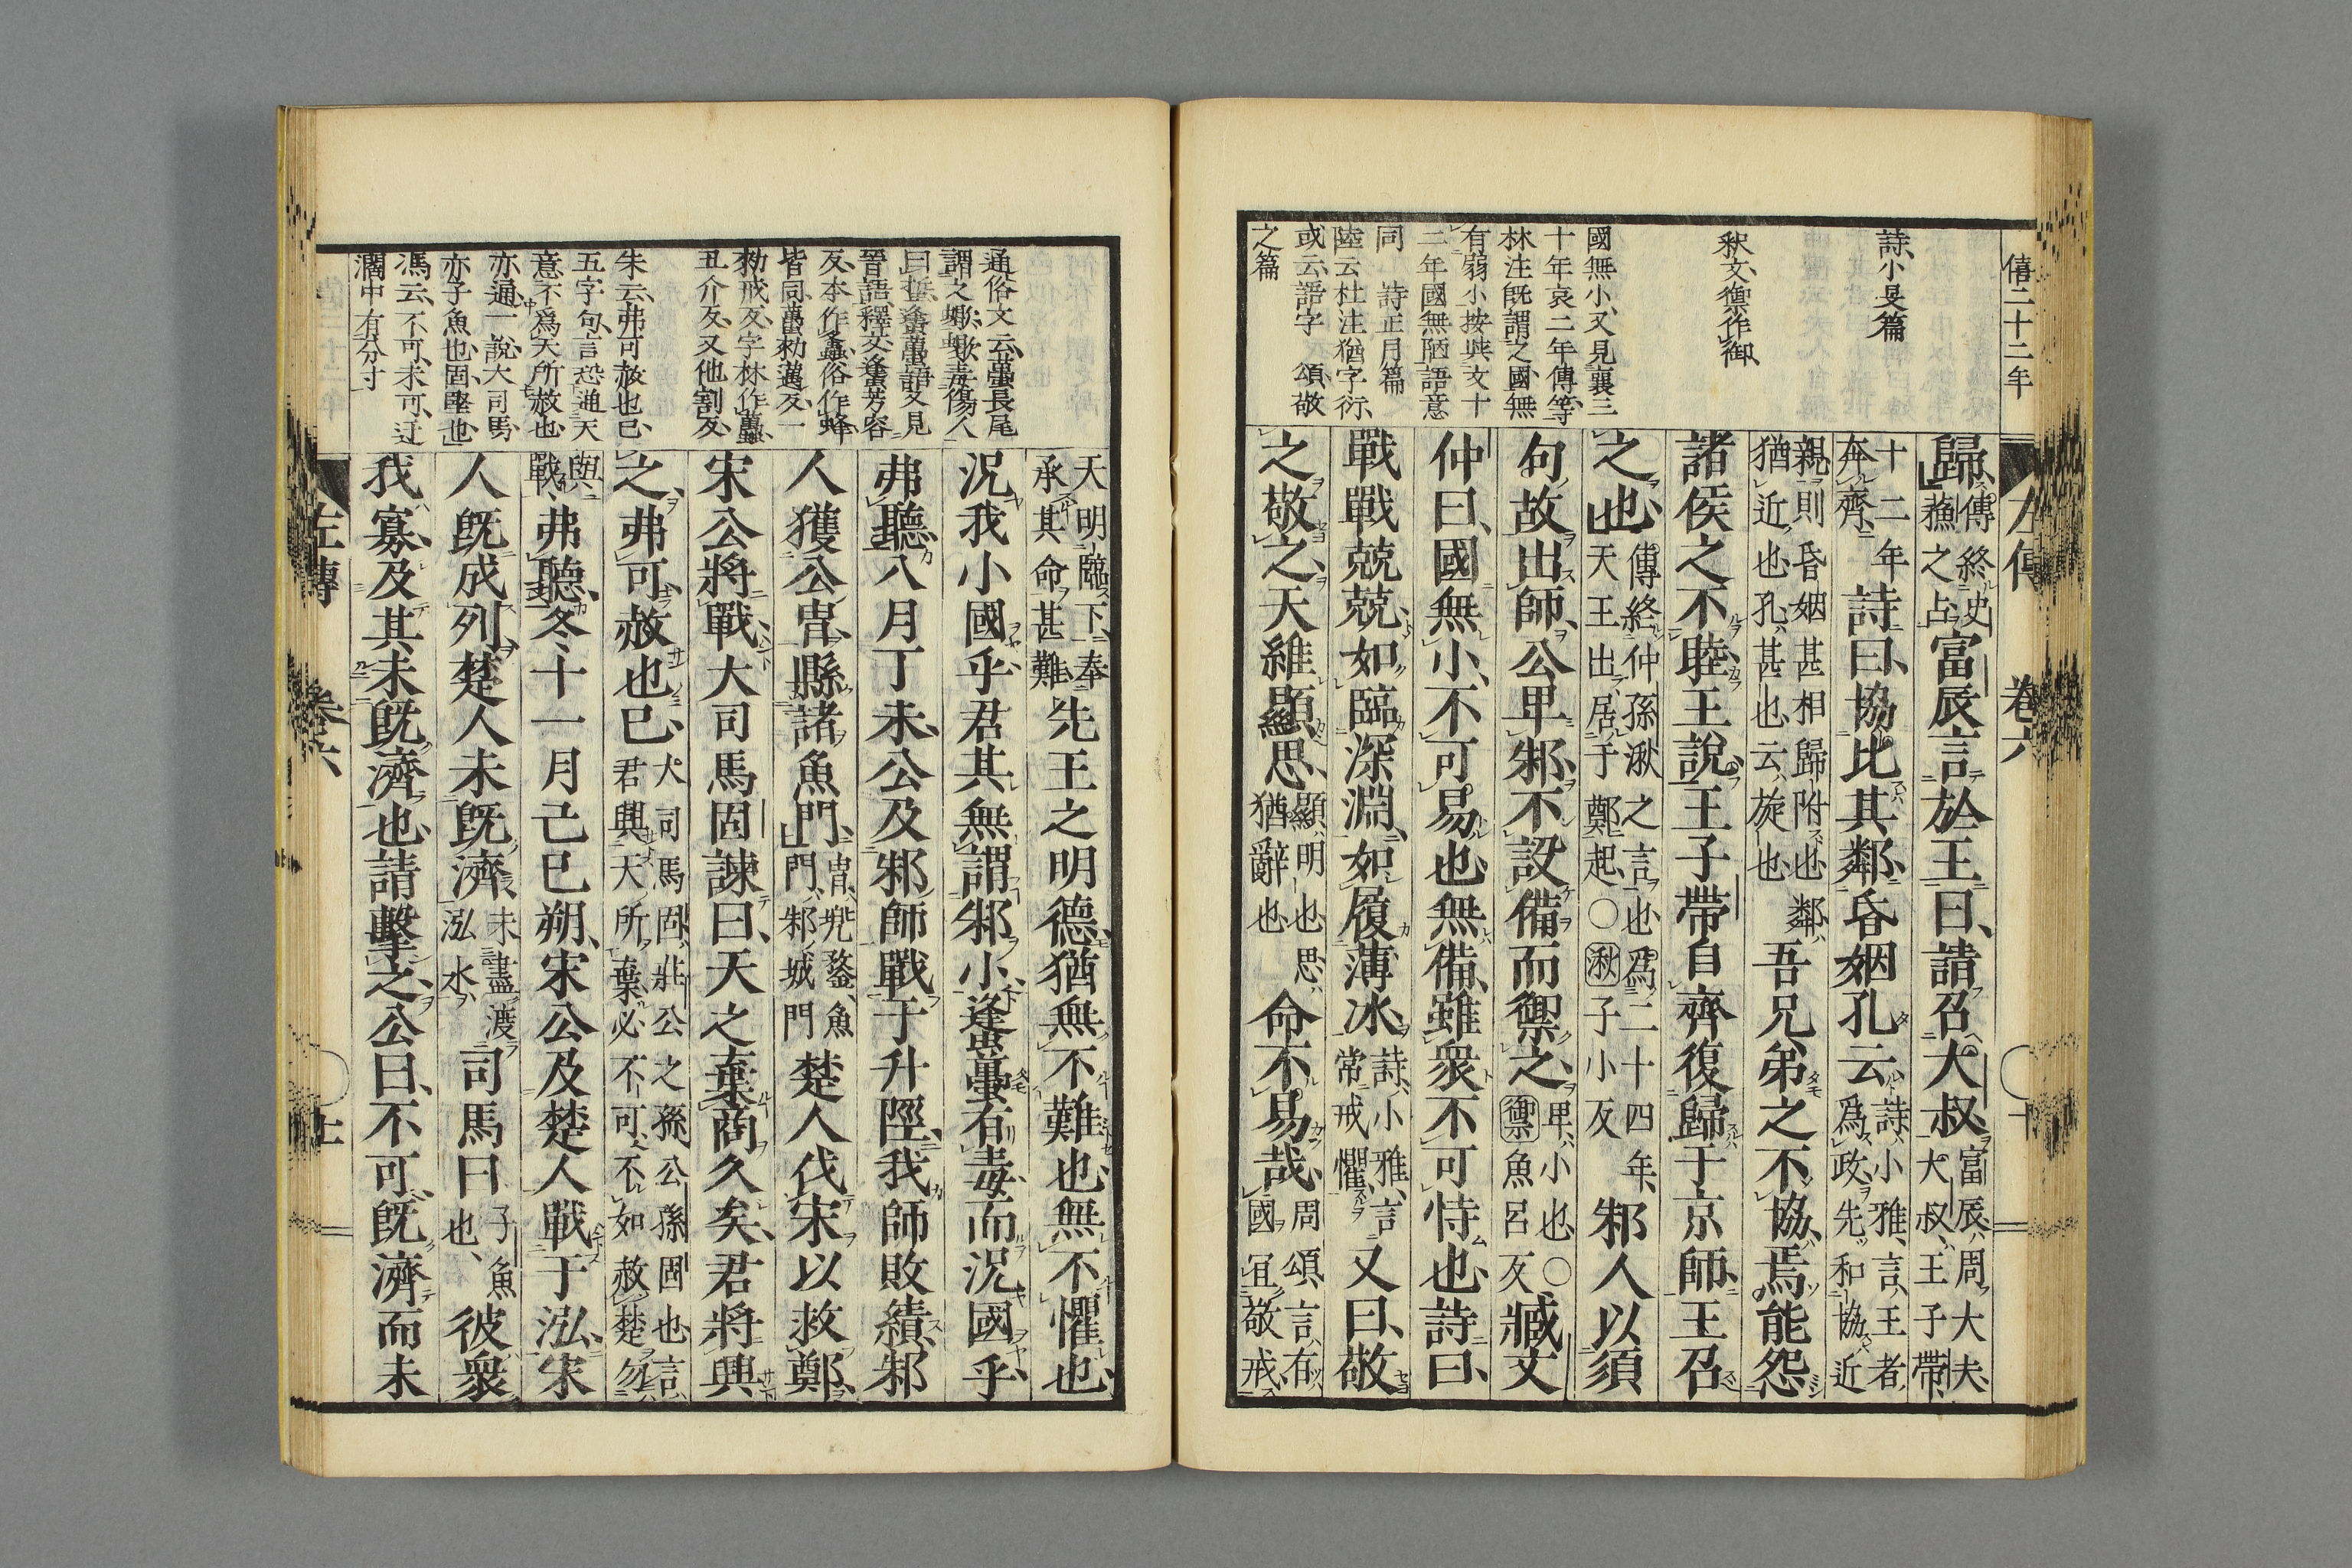 僖二十二年
左傳 卷六 十
詩小旻篇
釈文、禦作御、
國無小、又見襄三
十年哀二年傳等
林注既謂之國無
有弱小按與文十
二年國無陋語意
同 詩正月篇
陸云杜注猶字衍、
或云、語字 頌敬
之篇
歸、傳終史蘇之占富辰言於王曰、請召大叔、富辰、周大夫、大叔、王子帶、
十二年奔齊、詩曰、協比其鄰、昏姻孔云、詩、小雅、言、王者爲政、先和協近
親、則昏姻甚相歸附也鄰、猶近也、孔、甚也、云、旋也吾兄弟之不協、焉能怨
諸侯之不睦、王說、王子帶自齊復歸于京師、王召
之也、傳終仲孫湫之言也、爲二十四年天王出居于鄭起、○湫子小反邾人以須
句故出師、公卑邾、不設備而禦之、卑、小也、○禦魚呂反臧文
仲曰、國無小、不可易也、無備、雖衆不可恃也、詩曰、
戰戰兢兢、如臨深淵、如履薄冰、詩、小雅、言常戒懼、又曰、敬
之敬之、天維顯思、顯、明也、思、猶辭也、命不易哉、周頌、言、有國宜敬戒
天明臨下、奉承其命甚難先王之明德、猶無不難也、無不懼也、
況我小國乎、君其無謂邾小、蠭蠆有毒、而況國乎、
弗聽、八月丁未、公及邾師戰于升陘、我師敗績、邾
人獲公冑、縣諸魚門、冑、兜鍪、魚門、邾城門楚人伐宋以救鄭、
宋公將戰、大司馬固諫曰、天之棄商久矣、君將興
之、弗可赦也已、大司馬固、莊公之孫公孫固也、言君興天所棄必不可、不如赦楚勿
與戰、弗聽、冬十一月己巳朔、宋公及楚人戰于泓、宋
人既成列、楚人未既濟、未盡渡泓水、司馬曰子魚也、彼衆
我寡、及其未既濟也、請擊之、公曰、不可、既濟而未
通俗文云、蠆長尾
謂之蠍、蠍毒傷人
曰𧉅、蠭蠆語又見
晉語、釋文、蠭芳容
反、本作䗬、俗作蜂、
皆同、蠆勑邁反、一
勑戒反、字林作䘍、
丑介反、又他割反、
朱云、弗可赦也已、
五字句、言恐逋天
意、不爲天所赦也、
亦通、一說、大司馬、
亦子魚也、固堅也、
馮云、不可、未可、迂
濶中有分寸
左傳 卷六 十